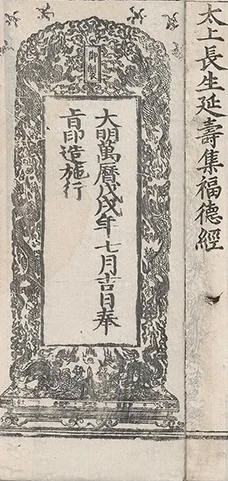 太上長生延壽集福德經
御製
大明萬曆戊戌年七月吉日奉
旨印造施行